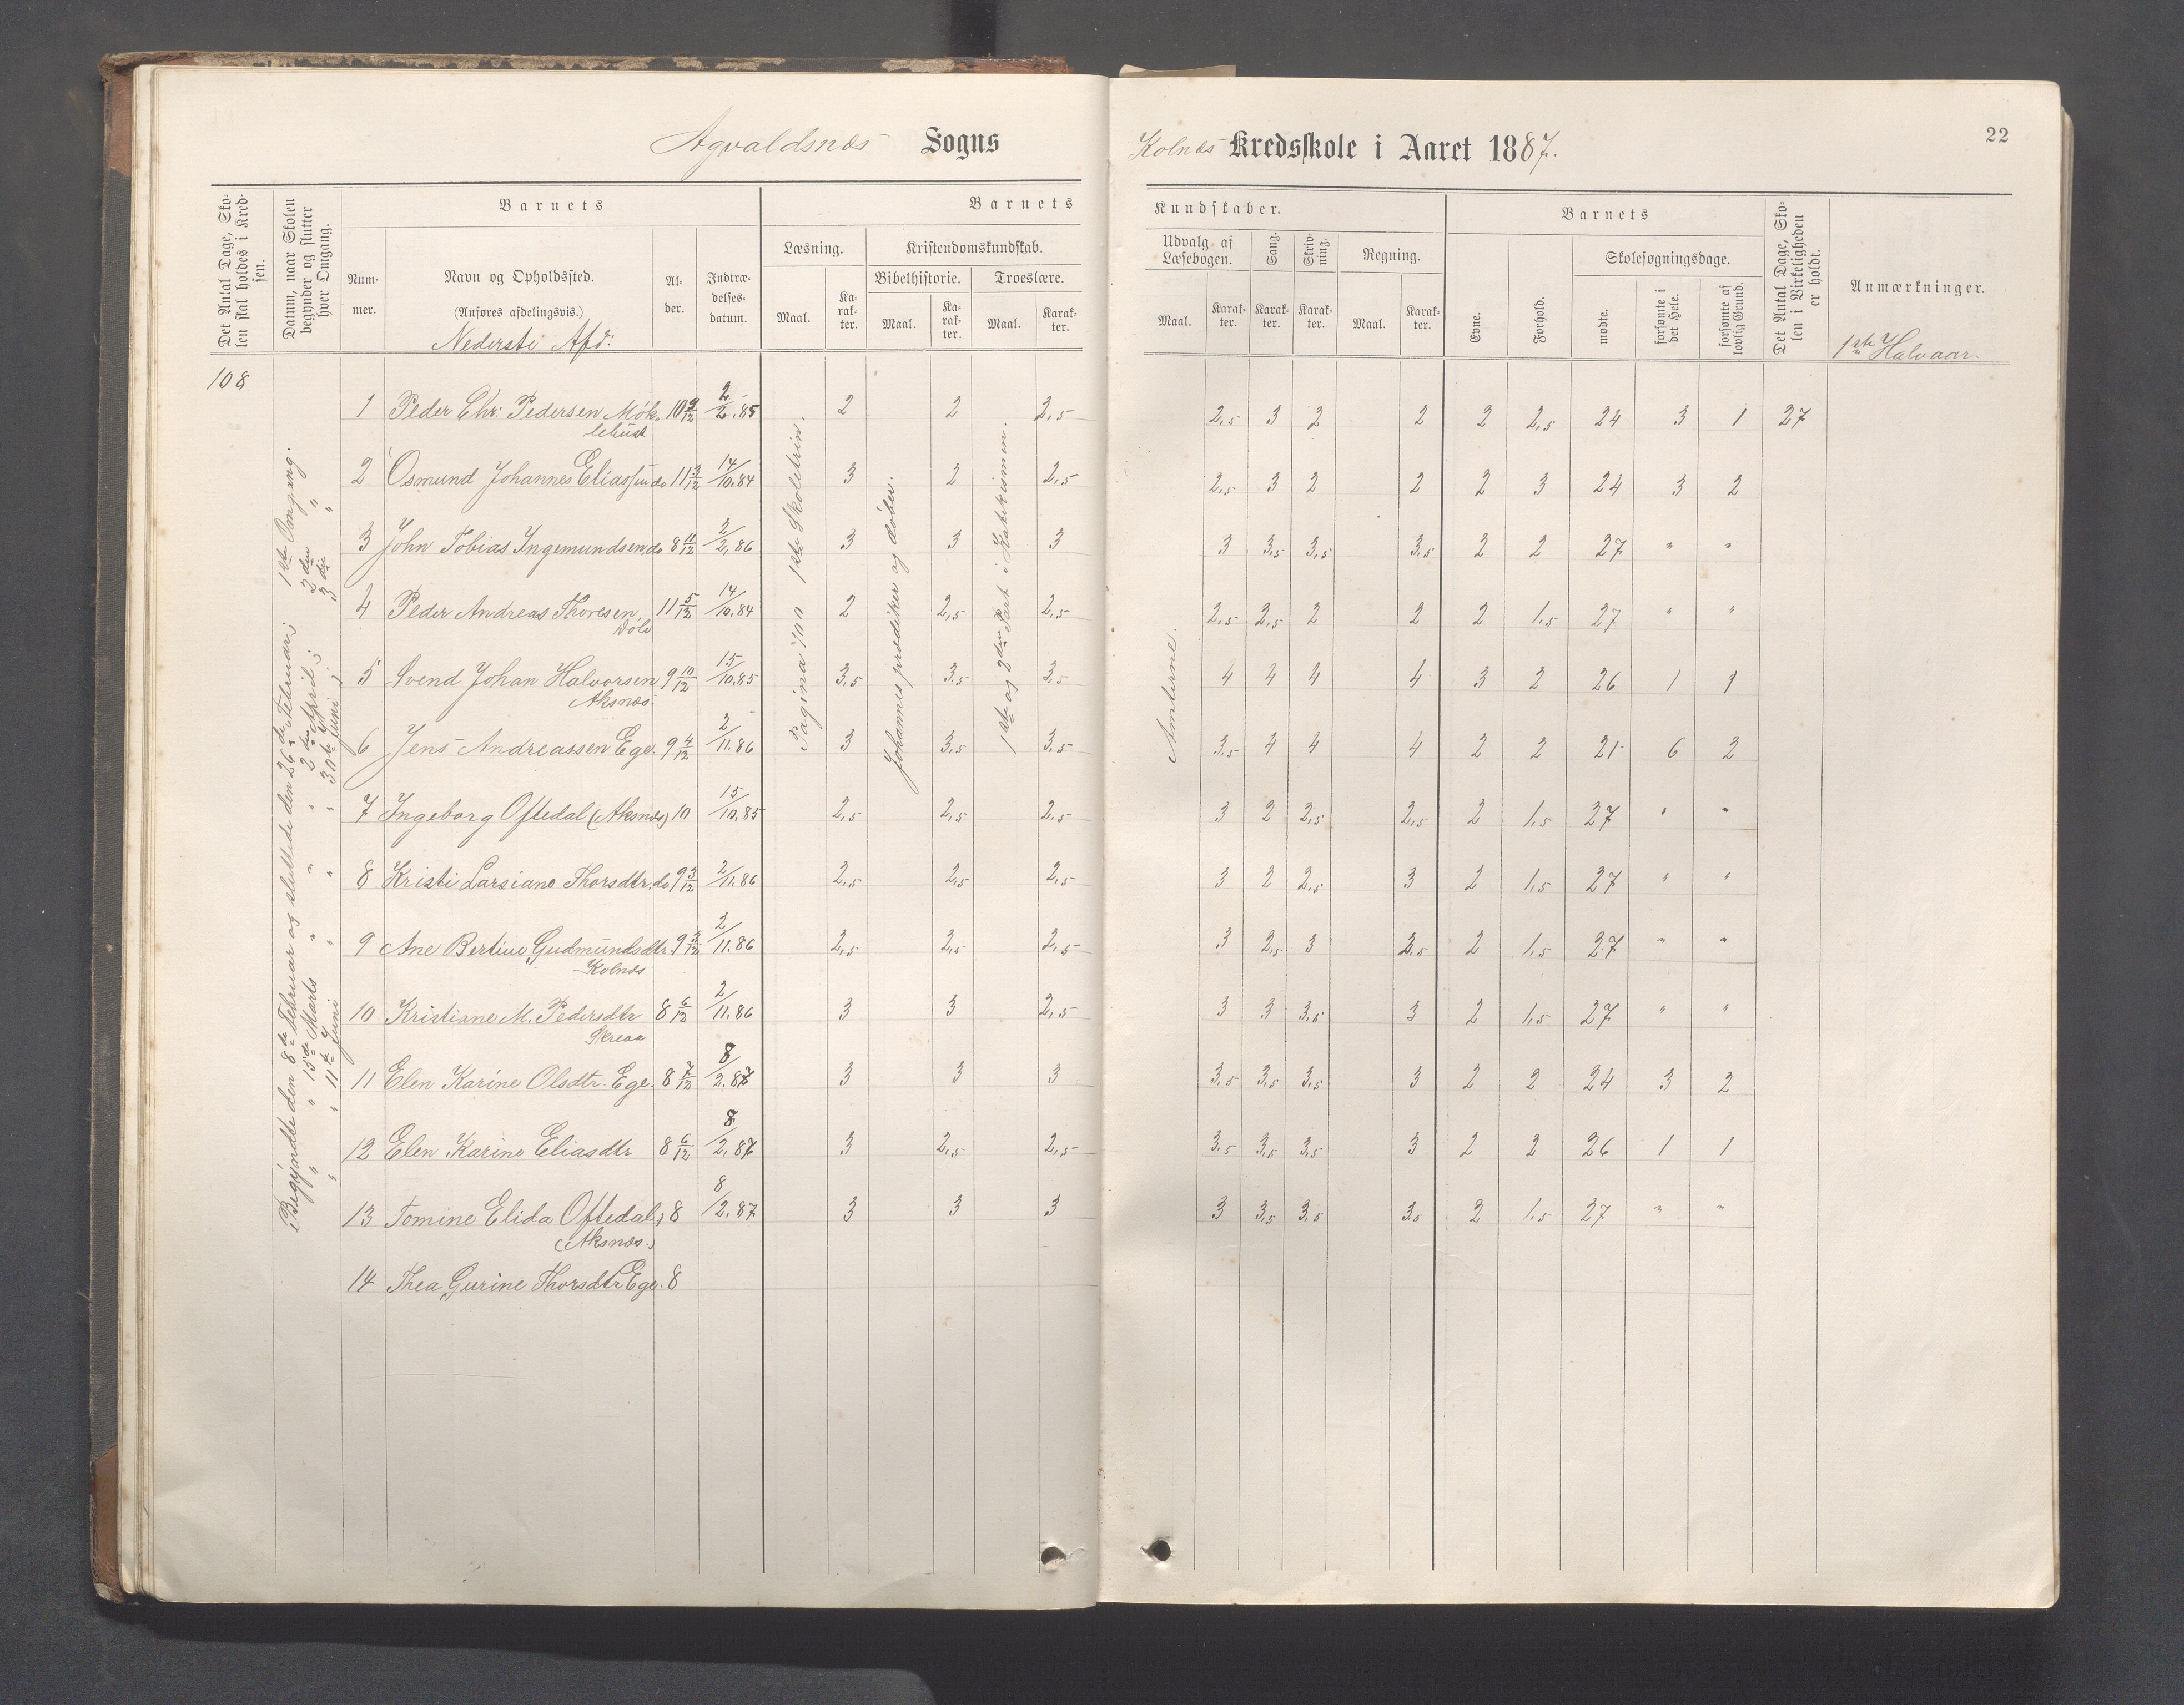 Agvaldsnæs Sogns
Kolnæs Kredsskole i Aaret 1887.
22
Det Antal Dage, Skolen skal holdes i Kredsen.
Datum, naar Skolen begynder og slutter hver Omgang.
Barnets
Nummer.
Navn og Opholdssted.
(Anføres afdelingsvis.)
Nederste Afd:
Alder.
Indtrædelsesdatum.
Barnets
Læsning.
Maal.
Karakter.
Kristendomskundskab.
Bibelhistorie.
Maal.
Karakter.
Troeslære.
Maal.
Karakter.
Kundskaber.
Udvalg af Læsebogen.
Maal.
Karakter.
Sang.
Karakter.
Skrivning.
Karakter.
Regning.
Maal.
Karakter.
Barnets
Evne.
Forhold.
Skolesøgningsdage.
mødte.
forsømte i det Hele.
forsømte af lovlig Grund.
Det Antal Dage, Skolen i Virkeligheden er holdt.
Anmærkninger.
1ste Halvaar.
108
Begyndte den 8de Februar og sluttede den 26de Februar; 1ste Omgang.
" " 15de Marts " " " 2den April; 2den "
" " 11te Juni " " " 30te Juni; 3die "
Pagina 100 1ste Skoletrin.
Johannes prædiker og døber.
1ste og 2den Part i Katekismen.
1 Peder Chr: Pedersen Møk- 10 9/12 2/2.85 2 2 2,5 2,5 3 2 2 2 2,5 24 3 1 27
lebust
2 Osmund Johannes Eliassen do 11 3/12 14/10.84 3 2 2,5 2,5 3 2 2 2 3 24 3 2
3 John Tobias Ingemundsen do 8 11/12 2/2.86 3 3 3 3 3,5 3,5 3,5 2 2 27 " "
4 Peder Andreas Thoresen 11 5/12 14/10.84 2 2,5 2,5 2,5 2,5 2 2 2 1,5 27 " "
5 Svend Johan Halvorsen 9 10/12 15/10.85 3,5 3,5 3,5 4 4 4 4 3 2 26 1 1
Aksnæs.
6 Jens Andreassen Ege. 9 4/12 2/11.86 3 3,5 3,5 3,5 4 4 4 2 2 21 6 2
7 Ingeborg Oftedal (Aksnæs) 10 15/10.85 2,5 2,5 2,5 3 2 2,5 2,5 2 1,5 27 " "
8 Kristi Larsiane Thorsdtr. do 9 3/12 2/11.86 2,5 2,5 2,5 3 2 2,5 3 2 1,5 27 " "
9 Ane Bertine Gudmundsdtr. 9 3/12 2/11.86 2,5 2,5 2,5 3 2,5 3 2,5 2 1,5 27 " "
Kolnæs
10 Kristiane M. Pedersdtr 8 6/12 2/11.86 3 3 2,5 3 3 3,5 3 2 1,5 27 " "
Skreaa
11 Elen Karine Olsdtr. Ege. 8 7/12 8/2.87 3 3 3 3,5 3,5 3,5 3 2 2 24 3 2
12 Elen Karine Eliasdtr 8 6/12 8/2.87 3 2,5 2,5 3,5 3,5 3,5 3 2 2 26 1 1
13 Tomine Elida Oftedal, 8 8/2.87 3 3 3 3 3,5 3,5 3,5 2 1,5 27 " "
(Aksnæs.)
14 Thea Gurine Thorsdtr Ege. 8